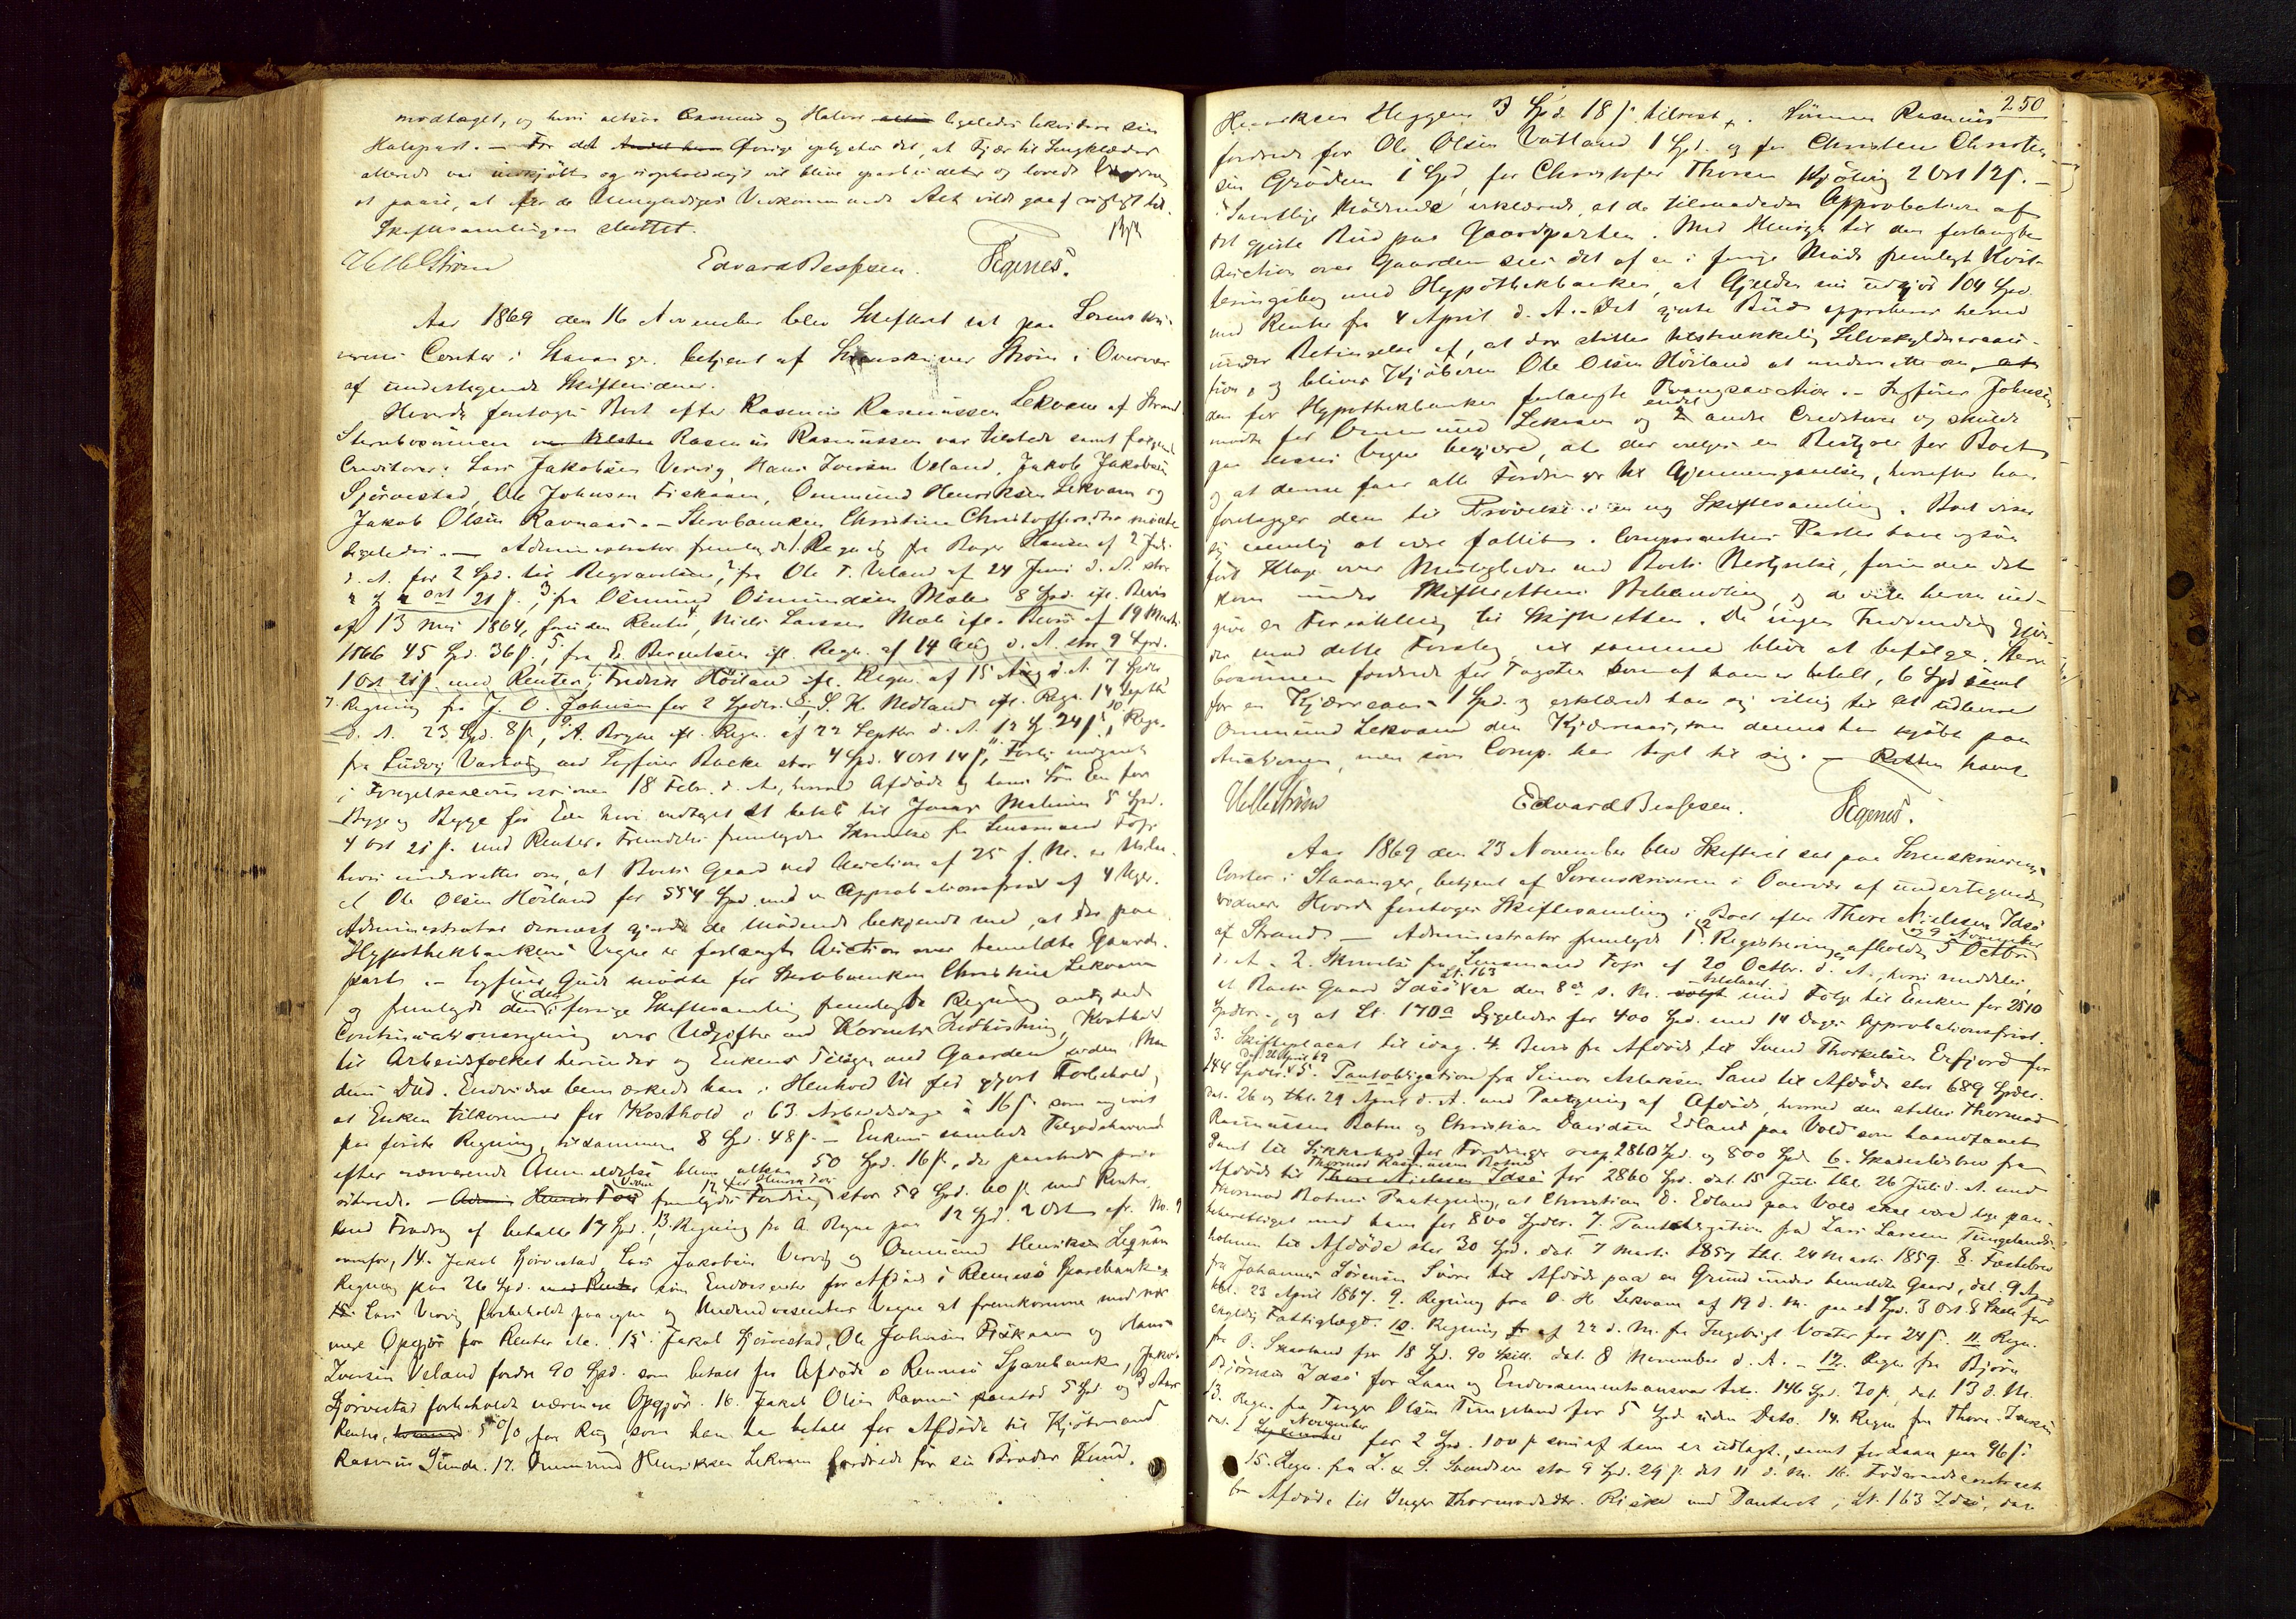 modtaget, og hvori altsaa Osmund og Halvor ligeledes
Halvpart. – For det Øvrige det, at Fjær til Sengklæder
allerede var indkjøbt og vil blive og lovede
at passe, at for de Umyndiges Vedkommende Alt vilde gaa rigtigt til.
Skiftesamlingen sluttet.
Edvard Bessesen. Egenes.
Aar 1869 den 16 November blev Skifteret sat paa Sorenskri-
verens Contor i Stavanger betjent af Sorenskriver Strøm i Overvær
af undertegnede Skiftevidner.
Hvorda foretoges Boet efter Rasmus Rasmussen Lekvam af Strand
Stervbosønnen Rasmus Rasmussen var tilstede samt følgende
Creditorer: Lars Jakobsen Vervig, Hans Iversen Veland, Jakob Jakobsen
Gjørvestad, Ole Johnsen Fiskaaen, Ommund Henriksen Lekvam og
Jakob Olsen Ravnaas. – Stervboenken Christine Christoffersdtr mødte
ligeledes. – Administrator fremlagde 1. Regning fra Hansen af 2 Juli
d. A. for 2 Spd. til Begravelsen, 2 fra Ole T. Veland af 24 Juni d. A. stor
ort 21 s., 3 fra Osmund Osmundsen Mæle 8 Spd. ifl. Bevis
af 13 Mai 1864, foruden Renter, 4 Niels Larsen Mæle ifl. Bevis af 19 Marts
1866 45 Spd. 36 s., 5. fra E. Berentsen ifl. Regn. af 14 Aug d. A. stor 9 Spd.
1 Ort 21 s. med Renter, Fredrik Høiland ifl. Regn. af 15 Aug d. A. 7 Spd
7. Regning fra J. O. Johnsen for 2 Spdlr. 8. S. K. Nedland ifl. Regn. 14 Septbr
d. A. 23 Spd. 8 s., 9. A. Bryne ifl. Regn. af 22 Septbr d. A. 12 Sp. 24 s., 10 Regn.
fra Ludvig Varhoug ved Sagfører Bucke stor 4 Spd. 4 Ort 14 s., 11 Forlig indgaaet
i Forligelsescommissionen 18 Febr. d. A., hvorved Afdøde og hans Søn En for
Begge og Begge for Een have vedtaget at betale til Jonas Malmin 5 Spd.
4 Ort 21 s. med Renter. Fremdeles fremlagdes Skrivelse fra Lensmand
hvori underrettes om, at Boets Gaard ved Auction af 25 f. M. er
at Ole Olsen Høiland for 554 Spd. med en Approbationsfrist af 4 Uger.
Administrator dernæst gjorde de Mødende bekjendt med, at der paa
Hypothekbankens Vegne er forlangt Auction over bemeldte Gaards-
part. – Sagfører Gude mødte for Stervboenken Christine Lekvam
og fremlagde den i den i forrige Skiftesamling fremlagte Regning antydede
Continuationsregning over Udgifter ved Kornets Indhøstning, Kosthold
til Arbeidsfolket herunder og Enkens Tilsyn med Gaarden siden Man-
dens Død. Endvidere bemærkede han i Henhold til før gjort Forbehold,
at Enken tilkommer for Kosthold i 63 Arbeidsdage à 16 s. som
paa første Regning, tilsammen 8 Spd. 48 s. – Enkens samlede Tilgodehavende
efter nærværende Anmeldelse bliver altsaa 50 Spd. 16 s., der paastodes prio-
riterede. – fremlagde Fordring stor 52 Spd. 60 s. med Renter
med Fradrag af betalte 17 Spd., 13. Regning fra A. Bryne paa 12 Spd. 2 Ort cfr. No. 9
ovenfor, 14. Jakob Gjørvestad, Lars Jakobsen Vervig og Ommund Henriksen Legvam
Regning paa 26 Spd. som Endossenter for Afdøde i Rennesø Sparebank,
Lars Vervig forbeholdt paa egne og Medendossenters Vegne at fremkomme med nær-
mere Opgjør for Renter etc. 15. Jakob Gjørvestad, Ole Johnsen Fiskaaen og Hans
Iversen Veland fordre 90 Spd. som betalt for Afdøde i Rennesø Sparebank, Jakob
Gjørvestad forbeholdt nærmere Opgjør. 16. Jakob Olsen Ravnaas paastod 5 Spd. og 3 Aars
Renter, 5 %, for Rug, som han har betalt for Afdøde til Kjøbmand
Rasmus Sunde. 17. Ommund Henriksen Lekvam fordrede for sin Broder Knud
250
Henriksen Heggen 3 Spd. 18 s. tilrest. Sønnen Rasmus
fordrede for Ole Olsen Vatland 1 Spd. og for Christen Christen-
sen Grødem 1 Spd, for Christofer Thorsen Kjølvig 2 Ort 12 s. –
Samtlige Mødende erklærede, at de tilraadede Approbation af
det gjorte Bud paa Gaardparten. Med Hensyn til den forlangte
Auction over Gaarden sees det af en i forrige Møde fremlagt Kvit-
teringsbog med Hypothekbanken, at Gjælden nu udgjør 104 Spd
med Renter fra 4 April d. A. – Det gjorte Bud approberes herved
under Betingelse af, at der stilles tilstrækkelig Selvskyldnercau-
tion, og bliver Kjøberen Ole Olsen Høiland at underrette om
den for Hypothekbanken forlangte Tvangsauction. – Sagfører Johnsen
mødte for Ommund Lekvam og endel andre Creditorer og skulde
paa deres Vegne begjære, at der vælges en Bestyrer for Boet
og at denne faar alle Fordringer til Gjennemgaaelse, hvorefter han
forelægger dem til Prøvelse i en ny Skiftesamling. Boet viser
sig nemlig at være fallit. Comparentens Parter have ogsaa
ført Klage over Misligheder ved Boets Bestyrelse, førinden det
kom under Skifterettens Behandling, og de ville herom ind-
give en Forestilling til Skifteretten. Da ingen Indvending gjor-
des mod dette Forslag, vil samme blive at befølge. Sterv-
bosønnen fordrede for Tagsten som af ham er betalt, 6 Spd samt
for en Kjærreaas 1 Spd. og erklærede han sig villig til at udlevere
Ommund Lekvam den Kjærreaas, som denne har kjøbt paa
Auctionen, men som Comp. har taget til sig. – Retten hævet
Edvard Bessesen. Egenes.
Aar 1869 den 23 November blev Skifteret sat paa Sorenskriverens
Contor i Stavanger, betjent af Sorenskriveren i Overvær af undertegnede
vidner. Hvorda foretoges Skiftesamling i Boet efter Thore Nielsen Idsø
af Strand – Administrator fremlagde 1. Registrering afholdt 5 Octbr og 9 November
d. A. 2. Skrivelse fra Lensmand af 20 Octbr. d. A., hvori meddeles,
at Boets Gaard Idsø Lt. 163 er den 8de s. M. tilslaaet med Følge til Enken for 2510
Spdlr., og at Lt. 170a ligeledes for 400 Spd. med 14 Dages Approbationsfrist.
3. Skifteplacat til idag. 4. Bevis fra Afdøde til Svend Thorkelsen Erfjord for
144 Spdlr. dat. 26 April 69. 5. Pantobligation fra Simon Aslaksen Sand til Afdøde stor 689 Spdlr.
dat. 26 og thl. 29 April d. A. med Paategning af Afdøde, hvorved den stilles Thormod
Rasmussen Botne og Christian Davidsen Edland paa Vold som haandfaaet
Pant til Sikkerhed for Fordringer resp 2860 Spd. og 800 Spd 6. Skadesløsbrev fra
Afdøde til Thormod Rasmussen Botne for 2860 Spd. dat. 15 Juli thl. 26 Juli d. A. med
Thormod Botnes Paategning, at Christian D. Edland paa Vold skal være lige pan-
teberettiget med ham for 800 Spdlr. 7. Pantobligation fra Lars Larsen Tungelands-
holmen til Afdøde stor 30 Spd. dat. 7 Marts 1857 thl. 24 Marts 1859. 8. Fæstebrev
fra Johannes Sørensen Svore til Afdøde paa en Grund under bemeldte Gaard, dat. 9 April
thl. 23 April 1867. 9. Regning fra O. H. Lekvam af 19 d. M. paa 1 Spd. 3 Ort 8 Skill for
erlagt Fattiglægd. 10. Regning af 22 d. M. fra Ingebrigt Voster for 24 s. 11. Regn.
fra O. Skaaland for 18 Spd. 90 Skill. dat. 8 November d. A. – 12. Regn. fra Bjørn
Bjørnsen Idsø for Laan og Endossementsansvar 146 Spd. 70 s, dat. 13 d. M.
13. Regn. fra Tørger Olsen Tungeland for 5 Spd. uden Dato. 14. Regn fra Thore Iversen
dat. 1 November for 2 Spd. 100 s som af ham er udlagt, samt for Laan paa 96 s.
15. Regn. fra L. & S. Svendsen stor 9 Spd. 29 s. dat 11 d. M. 16. Føderaadscontract
fra Afdøde til Inger Thormodsdtr. Riske med Panteret i Lt. 163 Idsø, dat.